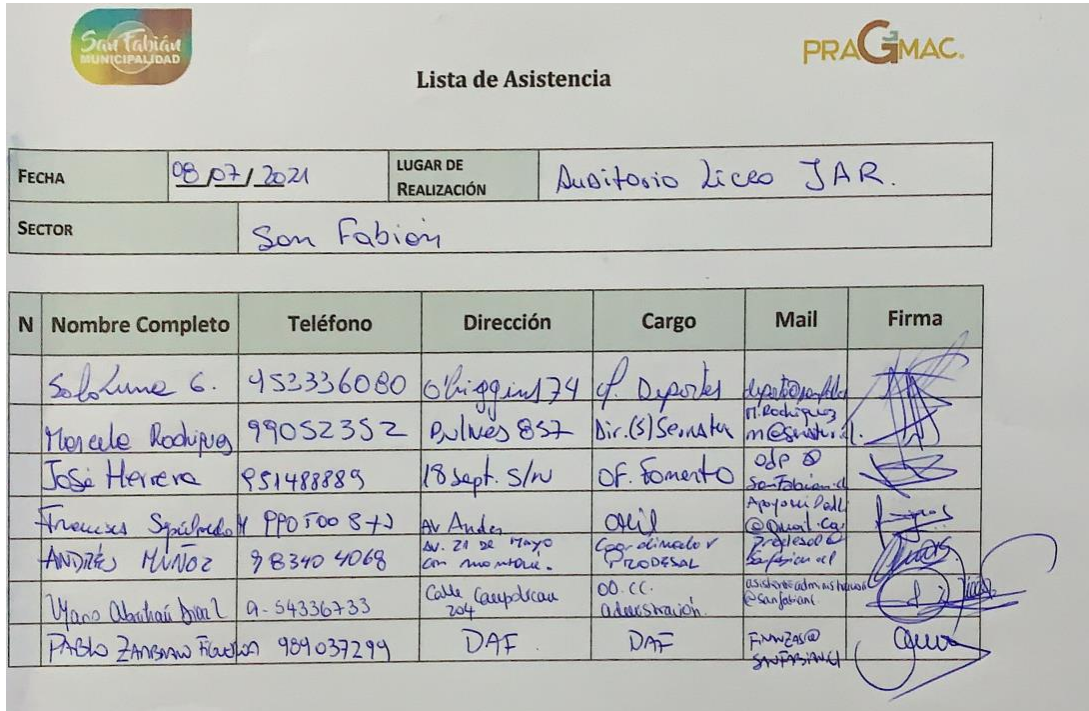 San Fabián
MUNICIPALIDAD
PRAGMAC.
Lista de Asistencia
FECHA 08/07/2021 LUGAR DE REALIZACIÓN Auditorio Liceo JAR.
SECTOR San Fabián
N Nombre Completo Teléfono Dirección Cargo Mail Firma
Luna G. 953336080 O'higgins 74 Deportes
Marcela Rodriguez 99052352 Bulnes 857 Dir.(S) Sernatur M.Rodriguez
José Herrera 951488889 18 Sept. S/N OF. Fomento odp@ SanFabian.cl
Francisca Sepúlveda Av Andes
ANDRÉS MUÑOZ 98340 4068 Av. 21 de Mayo con Coordinador PRODESAL Prodesal@ Sanfabian.cl
9-54336733 Calle Caupolican 204 OO.CC. administración
PABLO ZAMBRANO FIGUEROA 989037299 DAF DAF FINANZAS@ SANFABIAN.CL